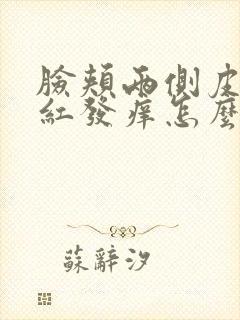 臉頰兩側皮
紅發癢怎麼
蘇辭汐